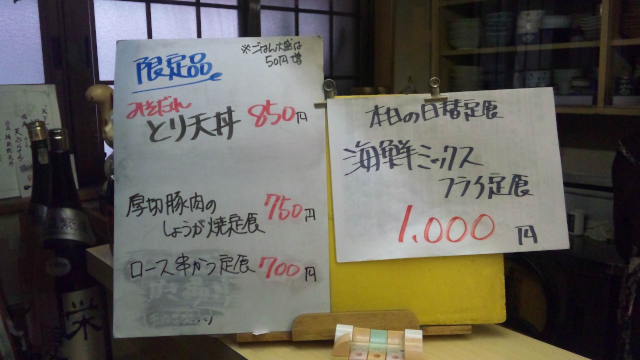 限定品
※ごはん大盛は
50円増
みそだれ
とり天丼 850円
厚切豚肉の
しょうが焼定食 750円
ロース串かつ定食 700円
本日の日替定食
海鮮ミックス
フライ定食
1,000円
栄